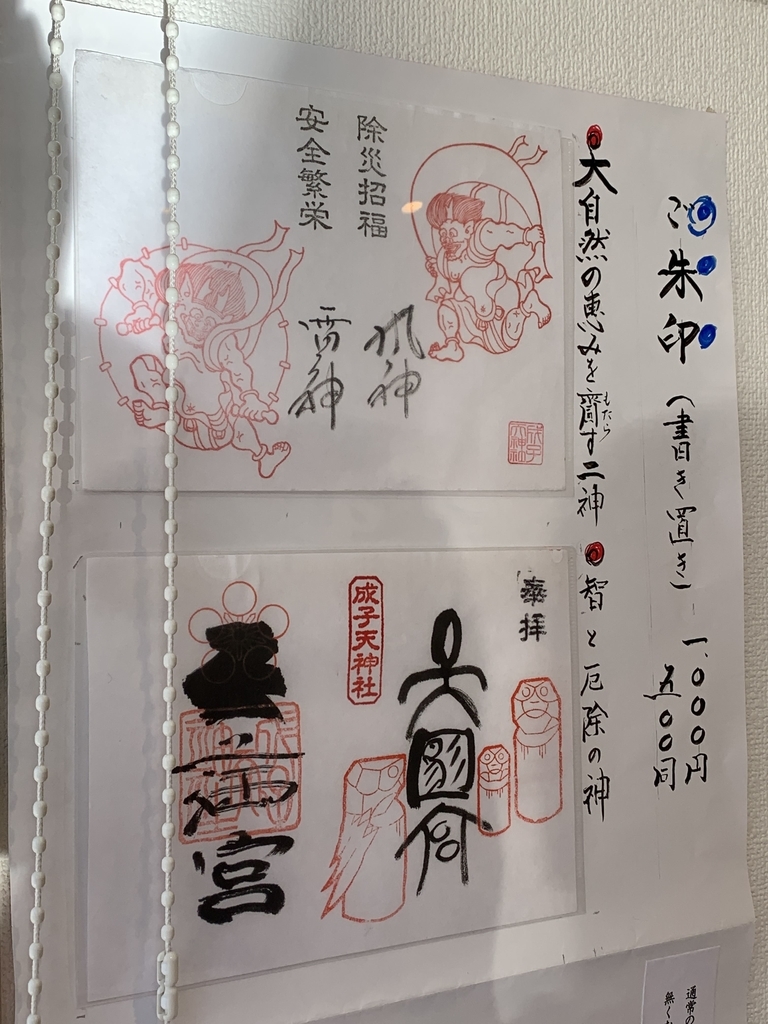 ご朱印(書き置き)
一、〇〇〇円
五〇〇円
大自然の恵みを齎す二神
もたら
智と厄除の神
除災招福
安全繁栄
風神
雷神
奉拝
成子天神社
宮
通常の
無く